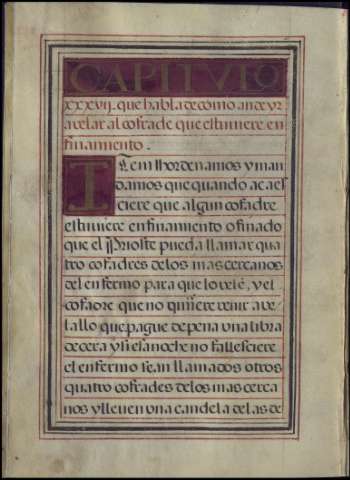 CAPITVLO
xxxvij. que habla de cómo an de yr
a velar al cofrade que estuuiere en
finamiento.
ITem hordenamos y man
damos que quando acaes
ciere que algun cofadre
estuuiere en finamiento o finado
que el prioste pueda llamar qua
tro cofadres de los mas cercanos
del enfermo para que lo velē, y el
cofadre que no quisiere venir a ve/
lallo que pague de pena vna libra
de cera y si esa noche no fallesciere
el enfermo sean llamados otros
quatro cofrades de los mas cerca
nos y lleuen vna candela de las de